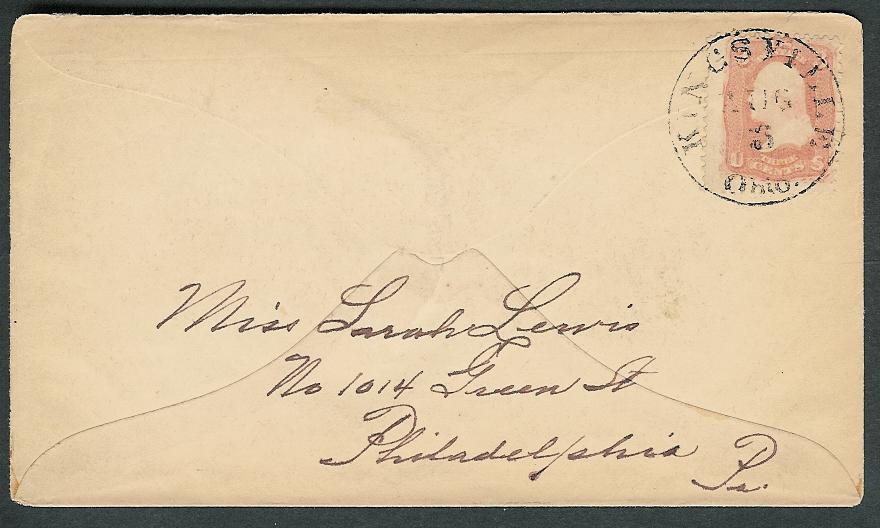 KINGSVILLE
AUG
5
Ohio.
U THREE CENTS S
Miss Sarah Lewis
No 1014 Green St
Philadelphia Pa.